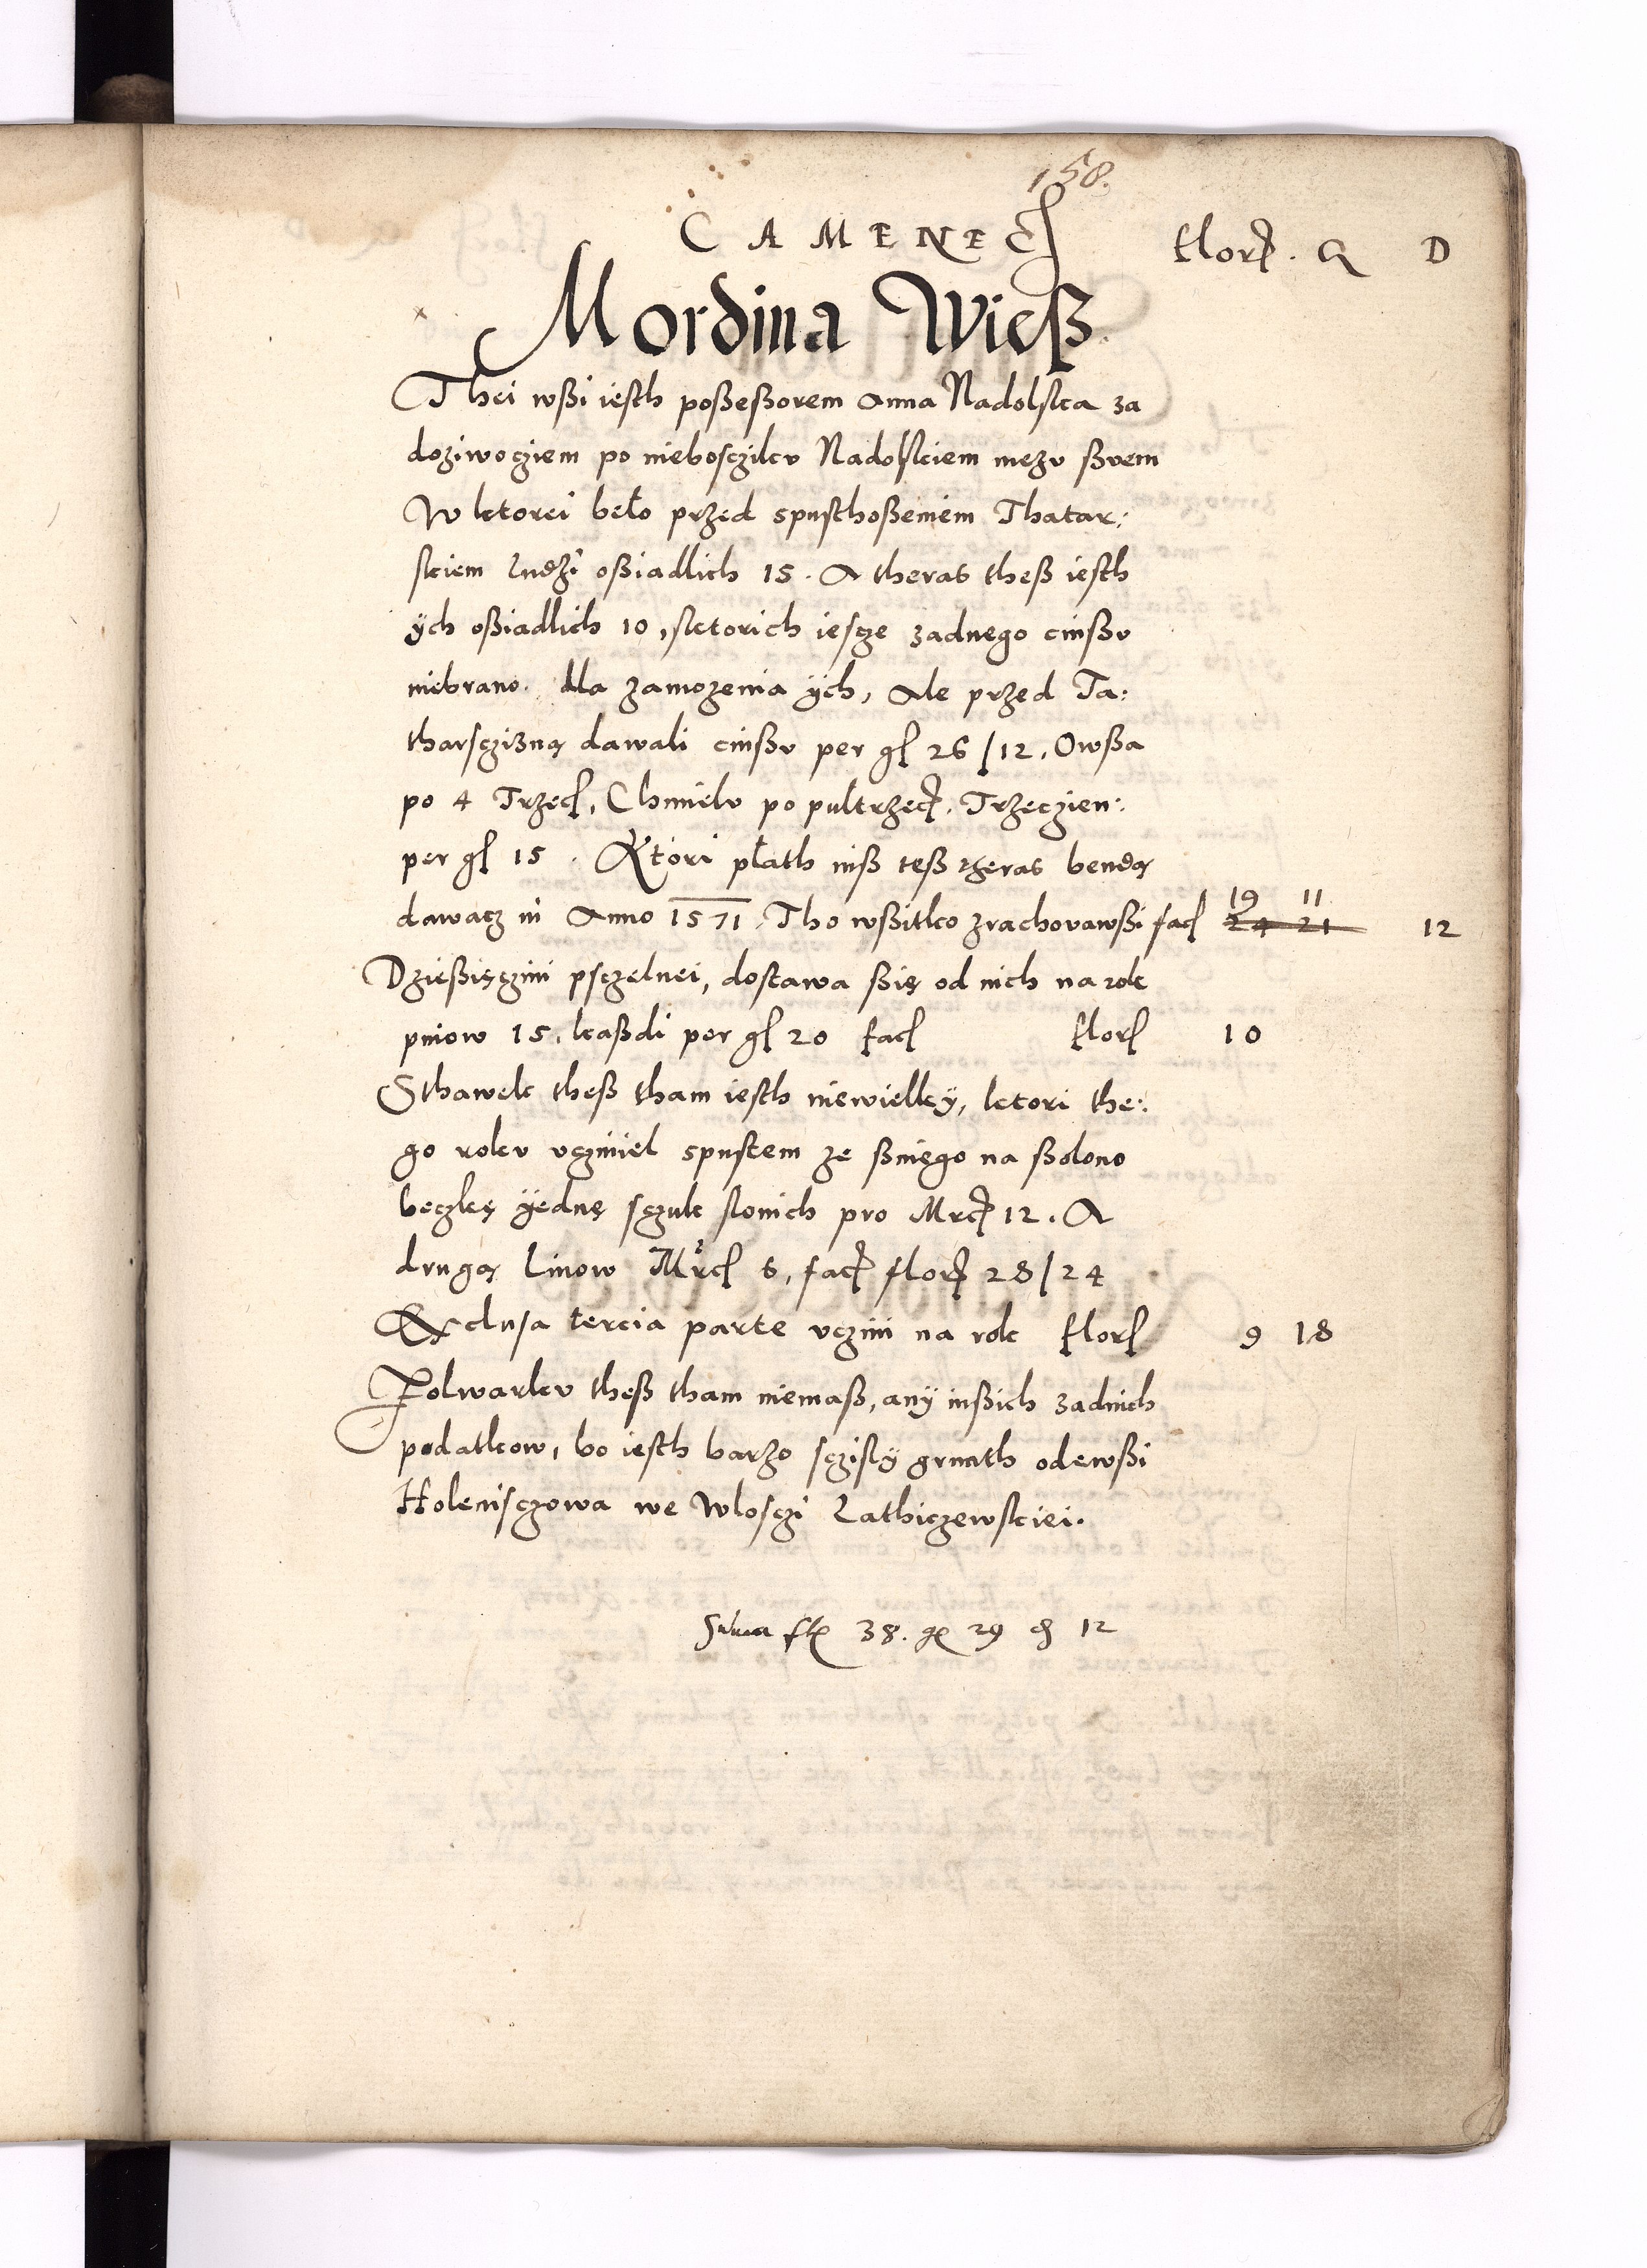 158.
CAMENEC
flor. G D
Mordina Wieß
Thei wßi iesth poßeßorem Anna Nadolska za
doziwocziem po nieboscziku Nadolskiem mezu ßvem
W ktorei beło przed spusthoßeniem Thatar:
skiem ludzi oßiadlich 15. A theras theß iesth
ych oßiadlich 10, sktorich iescze zadnego cinßv
niebrano. dla zamozenia ÿch, Ale przed Ta:
tharscziznę dawali cinßv per gl 26/12. Owßa
po 4 Trzec, Chmielv po pultrzec. Trzeczien:
per gl 15. Ktori płath niß teß theras bendą
dawacz in Anno 1571. Tho wßitko zrachovawßi fac 24 21 19 11 12
Dzießięczini psczelnei, dostawa ßię od nich na rok
pniow 15. kaßdi per gl 20 fac flor 10
Sthawek theß tham iesth niewielkÿ, ktori the:
go rokv vcziniel spustem ze ßniego na ßolono
beczkę ÿednę sczuk slonich pro Mrc 12. A
drugą linow Mrc 6, fac flor 28/24
Exclusa tercia parte vczini na rok flor 9 18
Folwarkv theß tham niemaß, anÿ inßich zadnich
podatkow, bo iesth barzo sczislÿ grunth odewßi
Holenisczowa we Wlosczi Lathiczewskiei.
Suma fl 38. g 29 d 12